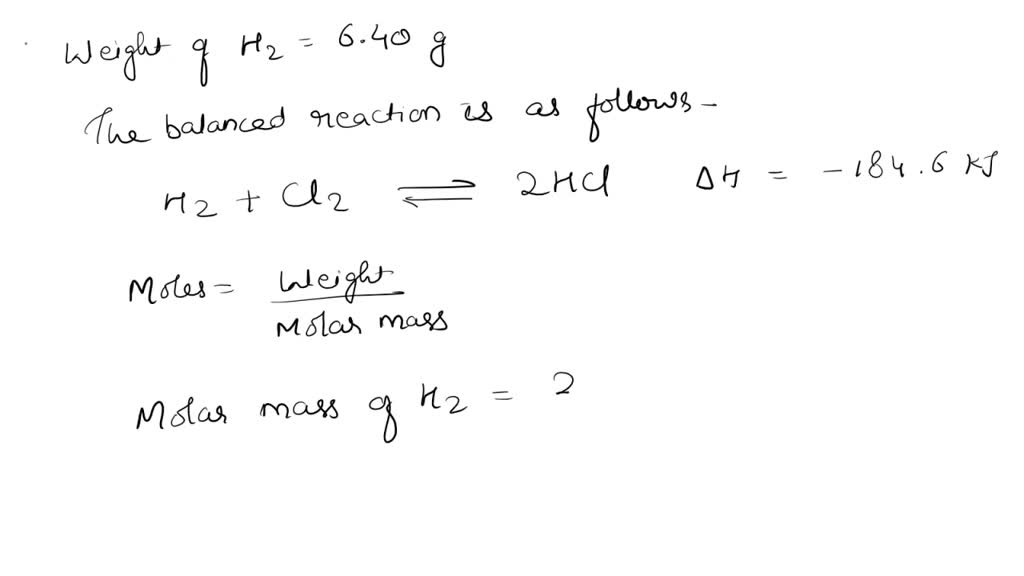 Weight of H2 = 6.40 g
The balanced reaction is as follows-
H2 + Cl2 ⇌ 2HCl ΔH = -184.6 KJ
Moles = Weight
Molar mass
Molar mass of H2 = 2